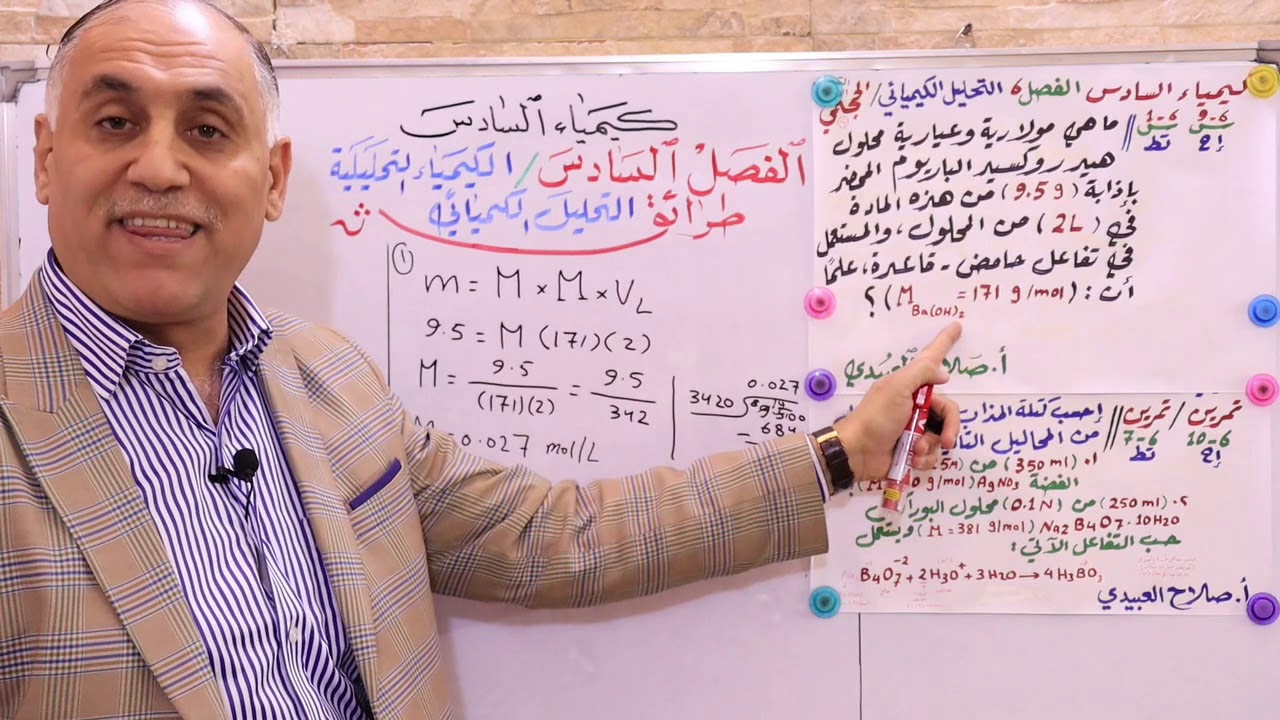 كيمياء السادس
الفصل السادس / الكيمياء التحليلية
طرائق التحليل الكيميائي
①
m = M × M × V_L
9.5 = M (171)(2)
M = 9.5 / (171)(2) = 9.5 / 342
= 0.027 mol/L
0.027
3420
684
كيمياء السادس الفصل 6 التحليل الكيميائي / الحجمي
س 6-9 س 6-1 // ما هي مولارية وعيارية محلول
إح تط هيدروكسيد الباريوم المحضر
بإذابة (9.5 g) من هذه المادة
في (2L) من المحلول، والمستعمل
في تفاعل حامض - قاعدة، علمًا
أن: (M Ba(OH)2 = 171 g/mol) ؟
أ. صلاح العبيدي
تمرين / تمرين // احسب كتلة المذاب
6-10 6-7 من المحاليل
إح تط
1. (350 ml) من
الفضة AgNO3 g/mol)
2. (250 ml) من (0.1 N) محلول
Na2B4O7.10H2O (M = 381 g/mol) ويتعمل
حسب التفاعل الآتي:
B4O7-2 + 2H3O+ + 3H2O → 4H3BO3
أ. صلاح العبيدي